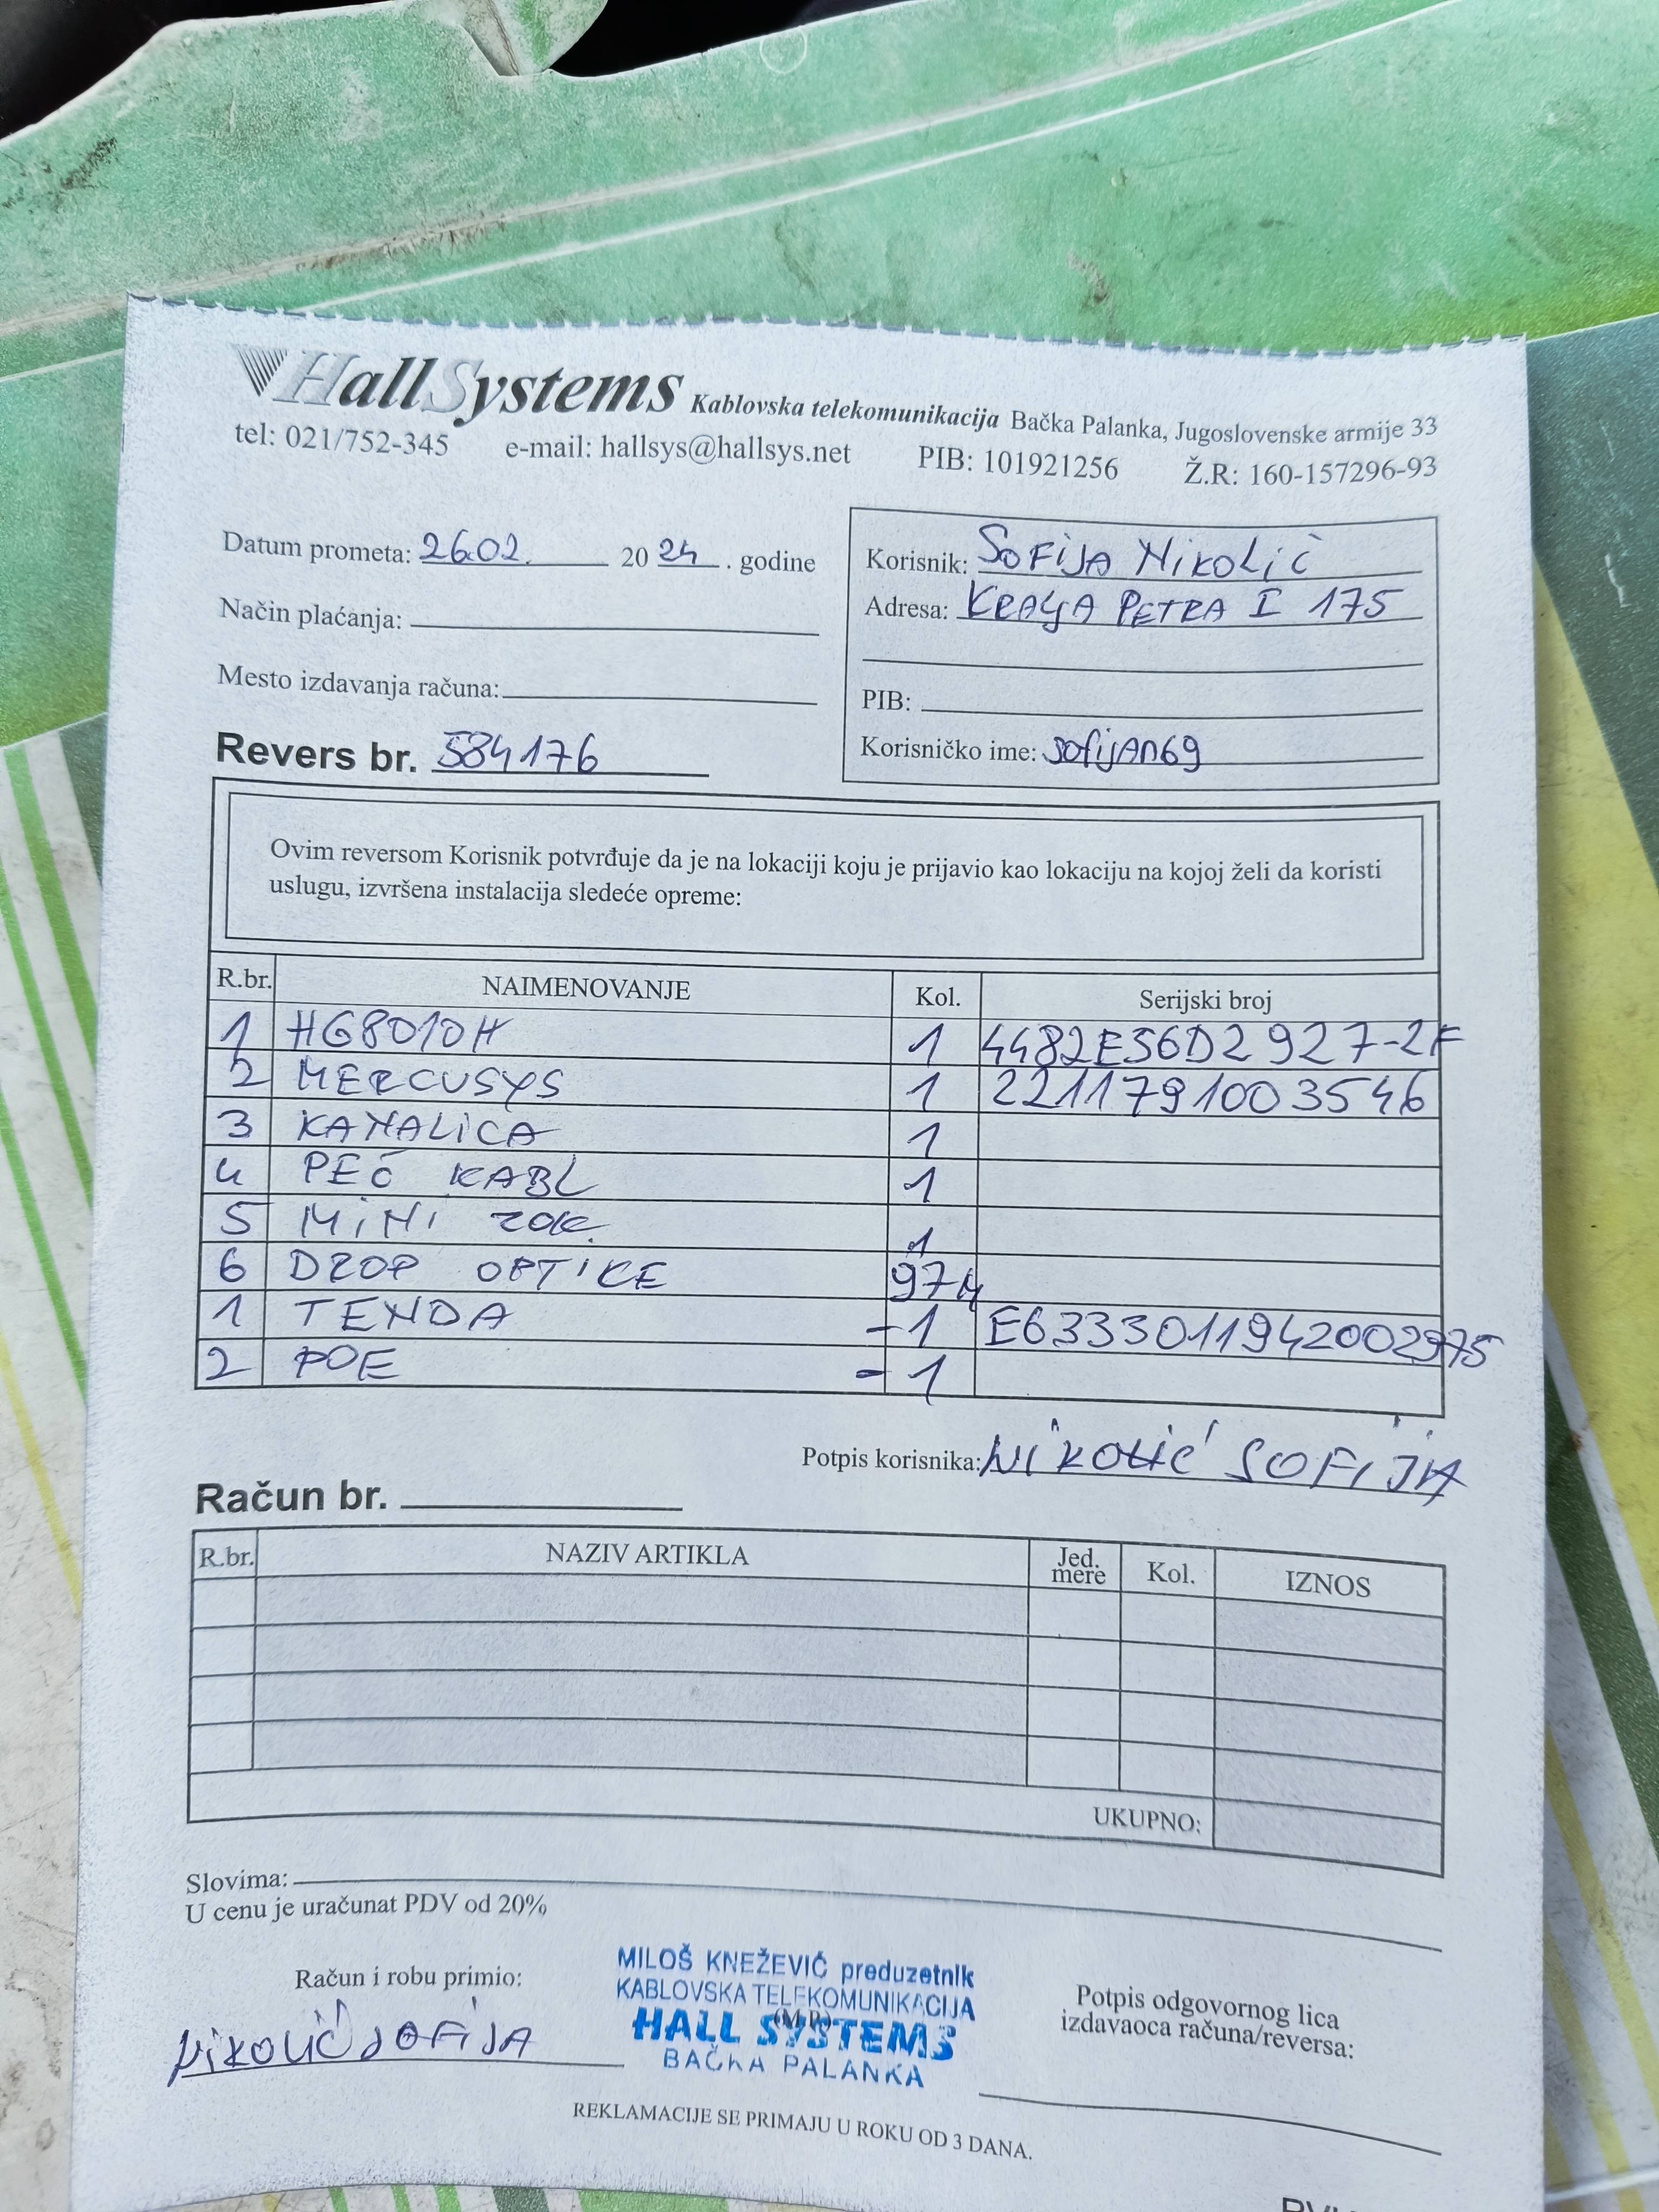 Hall Systems Kablovska telekomunikacija Bačka Palanka, Jugoslovenske armije 33
tel: 021/752-345 e-mail: hallsys@hallsys.net PIB: 101921256 Ž.R: 160-157296-93
Datum prometa: 26.02. 20 24 . godine
Način plaćanja:
Mesto izdavanja računa:
Revers br. 584176
Korisnik: SOFIJA NIKOLIĆ
Adresa: KRALJA PETRA I 175
PIB:
Korisničko ime: sofijan69
Ovim reversom Korisnik potvrđuje da je na lokaciji koju je prijavio kao lokaciju na kojoj želi da koristi
uslugu, izvršena instalacija sledeće opreme:
R.br. NAIMENOVANJE Kol. Serijski broj
1 HG8010H 1 4482E56D2927-2F
2 MERCUSYS 1 2211791003546
3 KANALICA 1
4 PEČ KABL 1
5 MINI ROK. 1
6 DROP OPTIKE 97M
1 TENDA -1 E6333011942002975
2 POE -1
Potpis korisnika: NIKOLIĆ SOFIJA
Račun br.
R.br. NAZIV ARTIKLA Jed. mere Kol. IZNOS
UKUPNO:
Slovima:
U cenu je uračunat PDV od 20%
Račun i robu primio:
NIKOLIĆ SOFIJA
MILOŠ KNEŽEVIĆ preduzetnik
KABLOVSKA TELEKOMUNIKACIJA
(M.P.)
HALL SYSTEMS
BAČKA PALANKA
Potpis odgovornog lica
izdavaoca računa/reversa:
REKLAMACIJE SE PRIMAJU U ROKU OD 3 DANA.